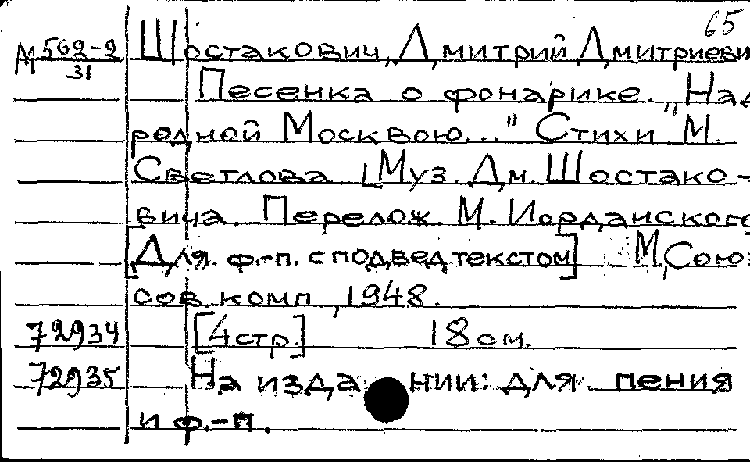 65
М 562-2 Шостакович, Дмитрий Дмитриеви
31
Песенка о фонарике. "Над
родной Москвою..." Стихи М.
Светлова. [Муз. Дм. Шостако-
вича. Перелож. М. Иорданского
[Для. ф.-п. с подвед текстом] М, Союз
сов. комп, 1948.
72934 [4 стр.] 18 см.
72935 На изда нии: для. пения
и ф.-п.